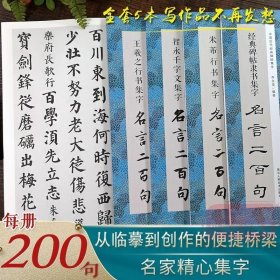 全套5本 写作品不再发愁
百川東到海何時復
少壯不努力老大徒傷悲
樂府長歌行 百學須先立志 朱
寶劍鋒從磨礪出梅花
王羲之行书集字
名言二百句
智永千字文集字
名言二百句
米芾行书集字
名言二百句
经典碑帖隶书集字
名言二百句
每册
200句
从临摹到创作的便捷桥梁
名家精心集字